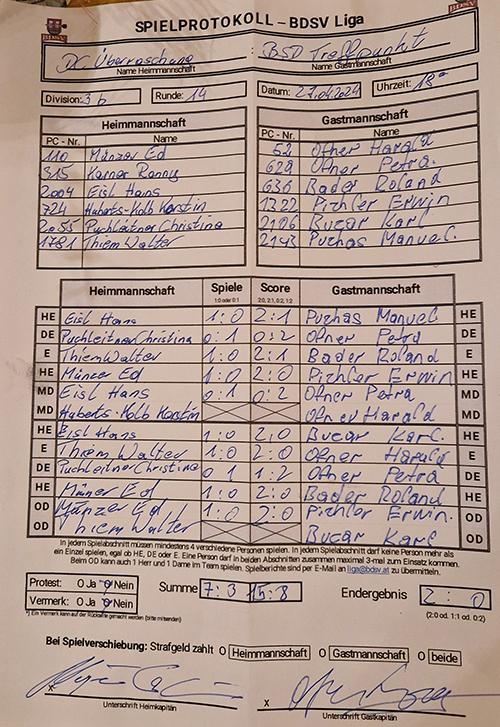 BDSV
SPIELPROTOKOLL – BDSV Liga
BDSV
DC Überraschung : BSD Treffpunkt
Name Heimmannschaft Name Gastmannschaft
Division: 3b Runde: 14 Datum: 27.04.2024 Uhrzeit: 18°°
Heimmannschaft Gastmannschaft
PC - Nr. Name PC - Nr. Name
110 Münzer Ed 62 Ofner Harald
315 Karner Ronny 629 Ofner Petra.
2004 Eisl Hans 636 Bader Roland
724 Huberts-Kolb Kerstin 1222 Pichler Erwin
2055 Puchleitner Christina 2106 Bucar Karl
1781 Thiem Walter 2143 Puchas Manuel.
Heimmannschaft Spiele Score Gastmannschaft
1:0 or 0:1 2:0, 2:1, 0:2, 1:2
HE Eisl Hans 1:0 2:1 Puchas Manuel HE
DE Puchleitner Christina 0:1 0:2 Ofner Petra DE
E Thiem Walter 1:0 2:1 Bader Roland E
HE Münzer Ed 1:0 2:0 Pichler Erwin HE
MD Eisl Hans 0:1 0:2 Ofner Petra MD
MD Huberts-Kolb Kerstin Ofner Harald MD
HE Eisl Hans 1:0 2:0 Bucar Karl. HE
E Thiem Walter 1:0 2:0 Ofner Harald E
DE Puchleitner Christina 0:1 1:2 Ofner Petra DE
HE Müner Ed 1:0 2:0 Bader Roland HE
OD Münzer Ed 1:0 2:0 Pichler Erwin. OD
OD Thiem Walter Bucar Karl OD
In jedem Spielabschnitt müssen mindestens 4 verschiedene Personen spielen. In jedem Spielabschnitt darf keine Person mehr als
ein Einzel spielen, egal ob HE, DE oder E. Eine Person darf in beiden Abschnitten zusammen maximal 3-mal zum Einsatz kommen.
Beim OD kann auch 1 Herr und 1 Dame im Team spielen. Spielberichte sind per E-Mail an liga@bdsv.at zu übermitteln.
Protest: O Ja O Nein Summe 7:3 15:8 Endergebnis 2:0
Vermerk: O Ja O Nein (2:0 od. 1:1 od. 0:2)
*) Ein Vermerk kann auf der Rückseite gemacht werden (bitte mitsenden)
Bei Spielverschiebung: Strafgeld zahlt O Heimmannschaft O Gastmannschaft O beide
x x
Unterschrift Heimkapitän Unterschrift Gastkapitän